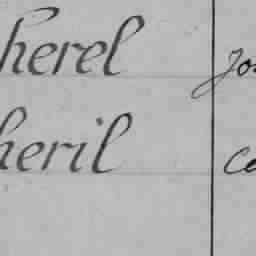 herel Jos
heril Ca